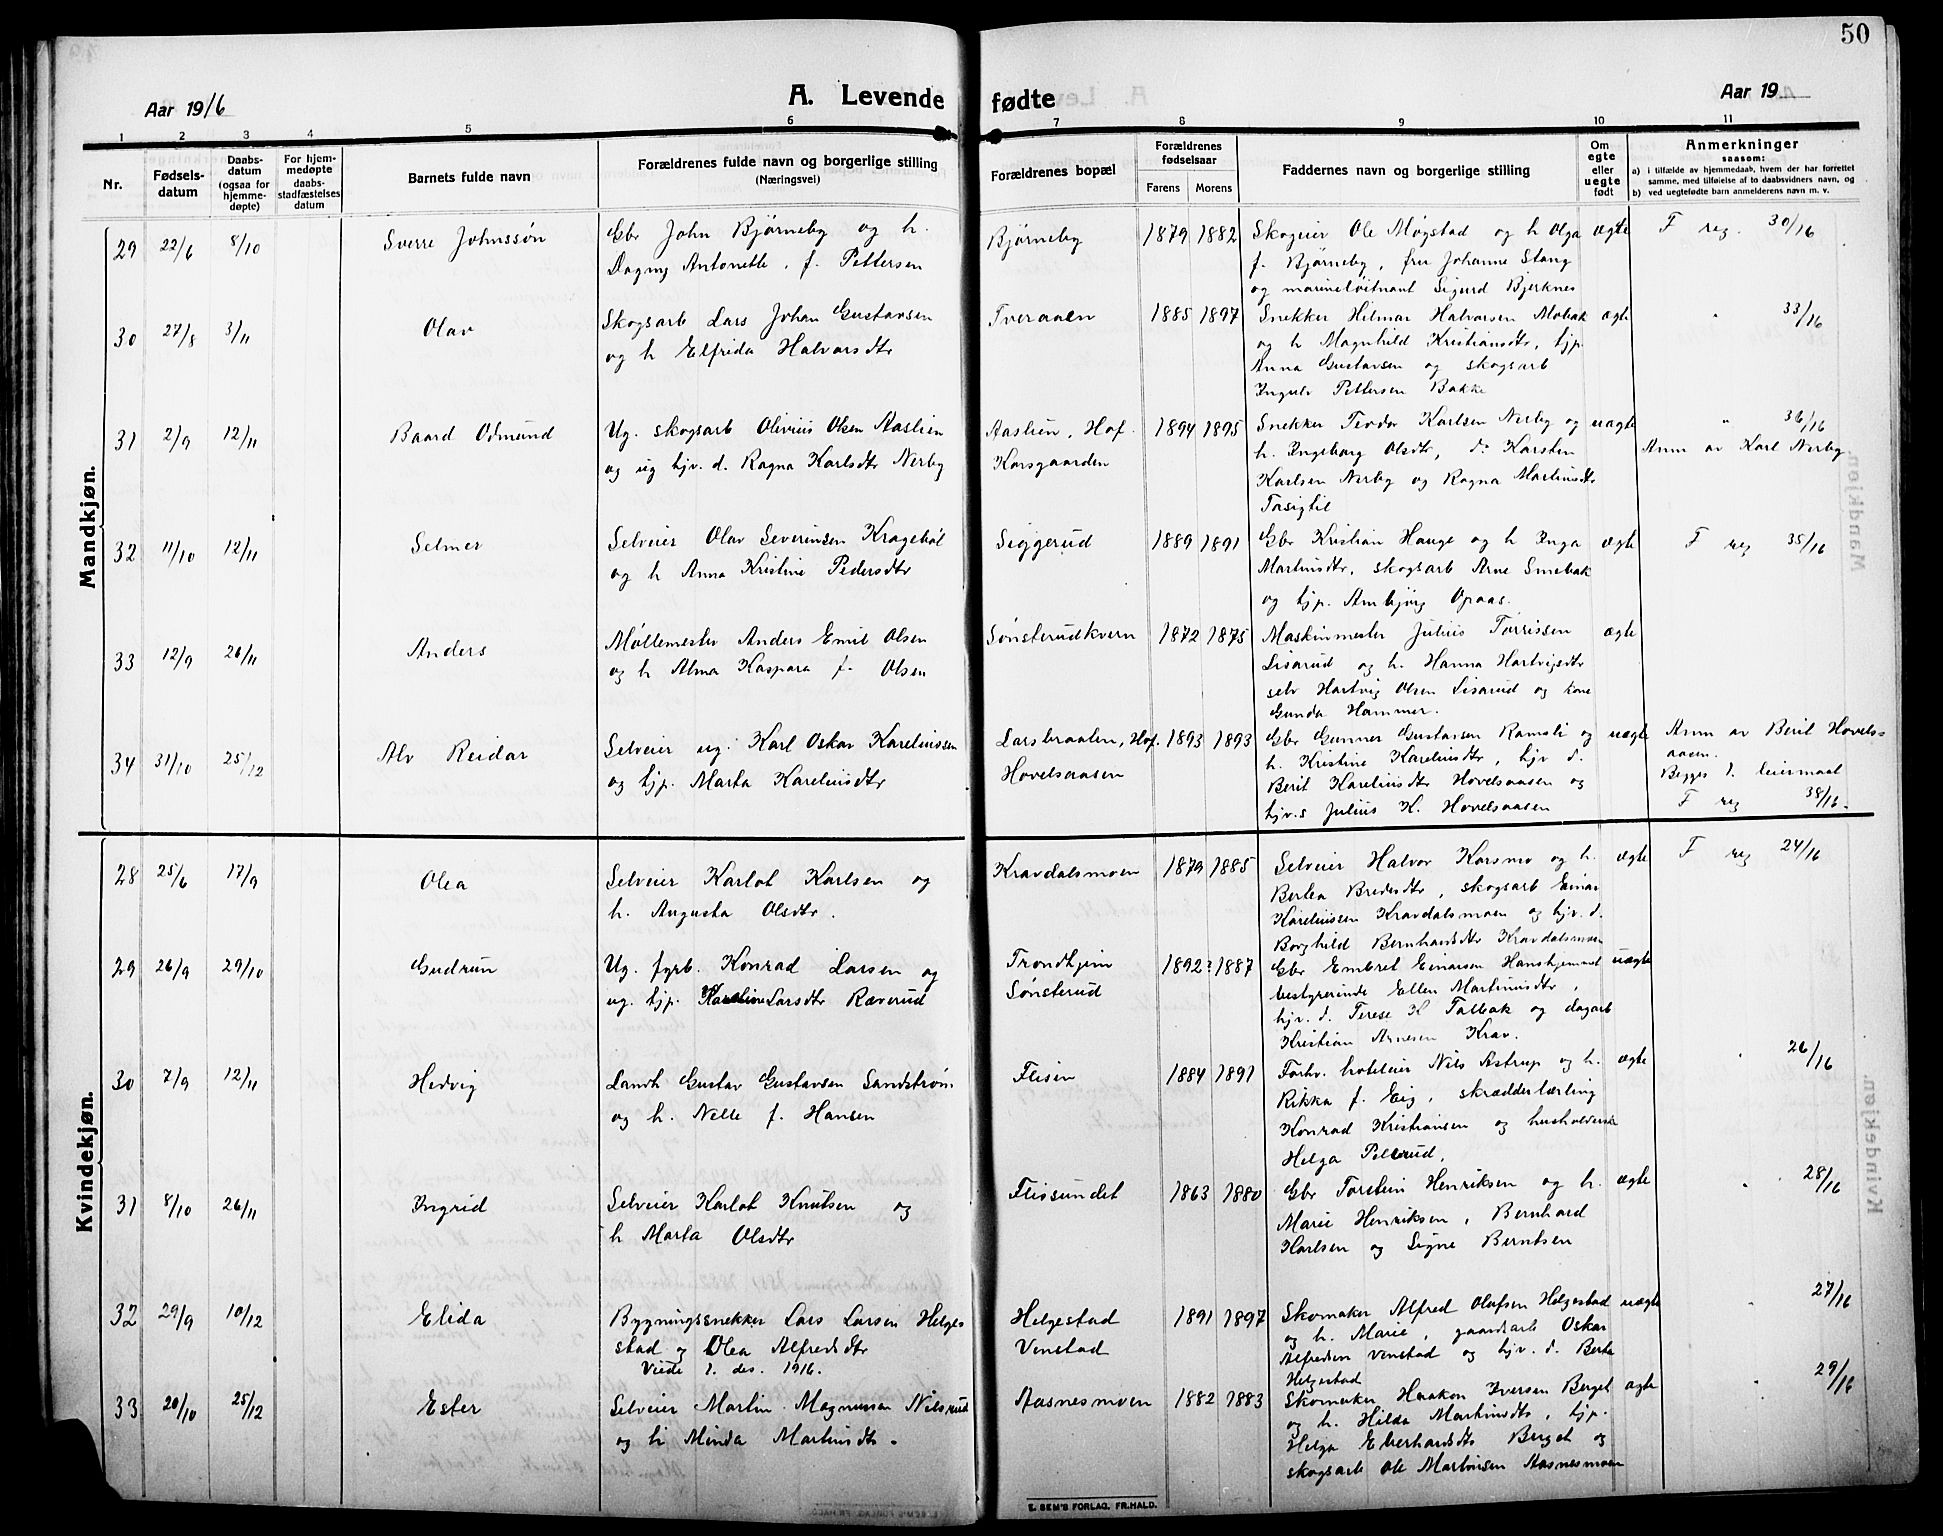 50
Aar 1916
A. Levende fødte
Aar 19
1 2 3 4 5 6 7 8 9 10 11
Nr.
Fødsels-
datum
Daabs-
datum
(ogsaa for
hjemme-
døpte)
For hjem-
medøpte
daabs-
stadfæstelses
datum
Barnets fulde navn
Forældrenes fulde navn og borgerlige stilling
(Næringsvei)
Forældrenes bopæl
Forældrenes
fødselsaar
Farens Morens
Faddernes navn og borgerlige stilling
Om
egte
eller
uegte
født
Anmerkninger
saasom:
a) i tilfælde av hjemmedaab, hvem der har forrettet
samme, med tilføielse af to daabsvidners navn, og
b) ved uegtefødte barn anmelderens navn m. v.
Mandkjøn.
29 22/6 8/10 Sverre Johnssøn
Gbr John Bjørneby og h.
Dagny Antonette, f. Pettersen
Bjørneby 1879 1882
Skogeier Ole Møgstad og h Olga
f. Bjørneby, fru Johanne Stang
og marineløitnant Sigurd Bjerknes
ægte F reg. 30/16
30 27/8 3/11 Olav
Skogsarb Lars Johan Gustavsen
og h Elfrida Halvorsdtr
Tveraaen 1885 1897
Snekker Hilmar Halvorsen Mobak
og h Magnhild Kristiansdtr, hjp.
Anna Gustavsen og skogsarb
Ingulv Pettersen Bakke
ægte " 33/16
31 2/9 12/11 Baard Odmund
Ug. skogsarb Olivius Olsen Aaslien
og ug hjv. d. Ragna Karlsdtr Nerby
Aaslien, Hof.
Korsgaarden
1894 1895
Snekker Teodor Karlsen Nerby og
h. Ingeborg Olsdtr, d: Karsten
Karlsen Nerby og Ragna Martinsdtr
uægte " 36/16
Anm av Karl Nerby.
32 11/10 12/11 Selmer
Selveier Olav Severinsen Kragebøl
og h Anna Kristine Pedersdtr
Siggerud 1889 1891
Gbr Kristian Hauge og h Inga
Martinsdtr, skogsarb Arne Smebak
og hjp. Ambjørg Opaas.
ægte F reg 35/16
33 12/9 26/11 Anders
Møllemester Anders Emil Olsen
og h Alma Kaspara f. Olsen
Sønsterudkvern 1872 1875
Maskinmester Julius Torrissen
Lisarud og h. Hanna Hartvigsdtr
selv Hartvig Olsen Lisarud og kone
Gunda Hammer.
ægte
34 31/10 25/12 Alv Reidar
Selveier ug. Karl Oskar Kareliussen
og hjp. Marta Kareliusdtr
Larsbraaten, Hof.
Hovelsaasen
1893 1893
Gbr Gunner Gustavsen Ramsli og
h. Kristine Kareliusdtr, hjv d.
Berit Kareliusdtr Hovelsaasen og
hjv.s Julius K. Hovelsaasen
uægte
Anm av Berit Hovels-
aasen.
Begges 1. leiermaal
F reg 38/16.
Kvindekjøn.
28 25/6 17/9 Olea
Selveier Karlot Karlsen og
h. Augusta Olsdtr.
Kravdalsmoen 1879 1885
Selveier Halvor Korsmo og h.
Bertea Bredesdtr, skogsarb Einar
Kareliussen Kravdalsmoen og hjv. d.
Borghild Bernhardsdtr Kravdalsmoen
ægte F reg 24/16
29 26/9 29/10 Gudrun
Ug. fyrb. Konrad Larsen og
ug. hjp. Karoline Larsdtr Ræverud
Trondhjem
Sønsterud
1892? 1887
Gbr Embret Einarsen Hanshjemmet
bestyrerinde Ellen Martinusdtr,
hjv. d. Terese K Talbak og dagarb
Kristian Arnesen Krav.
uægte
30 7/9 12/11 Hedvig
Landh Gustav Gustavsen Sandstrøm
og h. Nelle f. Hansen
Flisen 1884 1891
Forhv. hoteleier Nils Astrup og h.
Rikka f. Eig, skrædderlærling
Konrad Kristiansen og husholderske
Helga Pellerud.
ægte " 26/16
31 8/10 26/11 Ingrid
Selveier Karlot Knutsen og
h Marta Olsdtr
Flissundet 1863 1880
Gbr Torstein Henriksen og h.
Marie Henriksen, Bernhard
Karlsen og Signe Berntsen
ægte " 28/16
32 29/9 10/12 Elida
Bygningssnekker Lars Larsen Helges
stad og Olea Alfredsdtr
Viede 2. des. 1916.
Helgestad
Venstad
1891 1897
Skomaker Alfred Olafsen Helgestad
og h. Marie, gaardsarb Oskar
Alfredsen Venstad og hjv. d. Berta
Helgestad
uægte " 27/16
33 20/10 25/12 Ester
Selveier Martin Magnussen Nilsrud
og h Minda Martinsdtr.
Aasnesmoen 1882 1883
Skomaker Haakon Iversen Berget
og h. Hilda Martinsdtr, hjp.
Helga Eberhardsdtr Berget og
skogsarb Ole Martinsen Aasnesmoen
ægte 29/16
E. SEM'S FORLAG, FR.HALD.